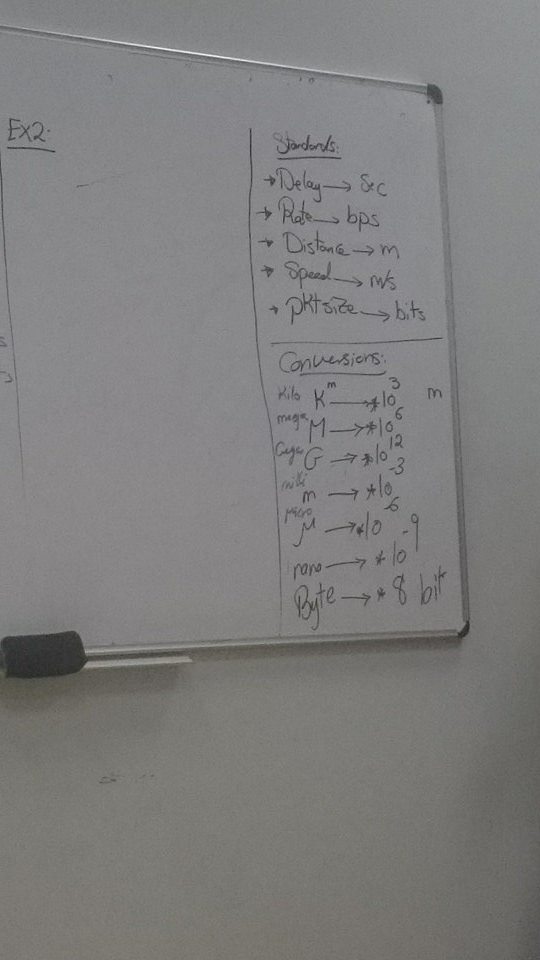 Ex2:
Standards:
→ Delay → Sec
→ Rate → bps
→ Distance → m
→ Speed → m/s
→ pktsize → bits
Conversions:
Kilo K m → *10^3 m
mega M → *10^6
Gega G → *10^12
milli m → *10^-3
micro μ → *10^-6
nano → *10^-9
Byte → * 8 bit